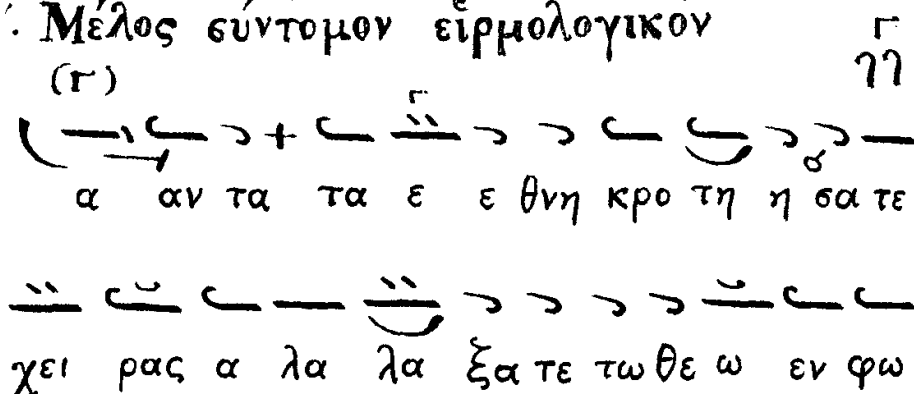 Μέλος σύντομον εἱρμολογικόν
Γ
(Γ) ηη
Γ
α αν τα τα ε ε θνη κρο τη η σα τε
χει ρας α λα λα ξα τε τω θε ω εν φω